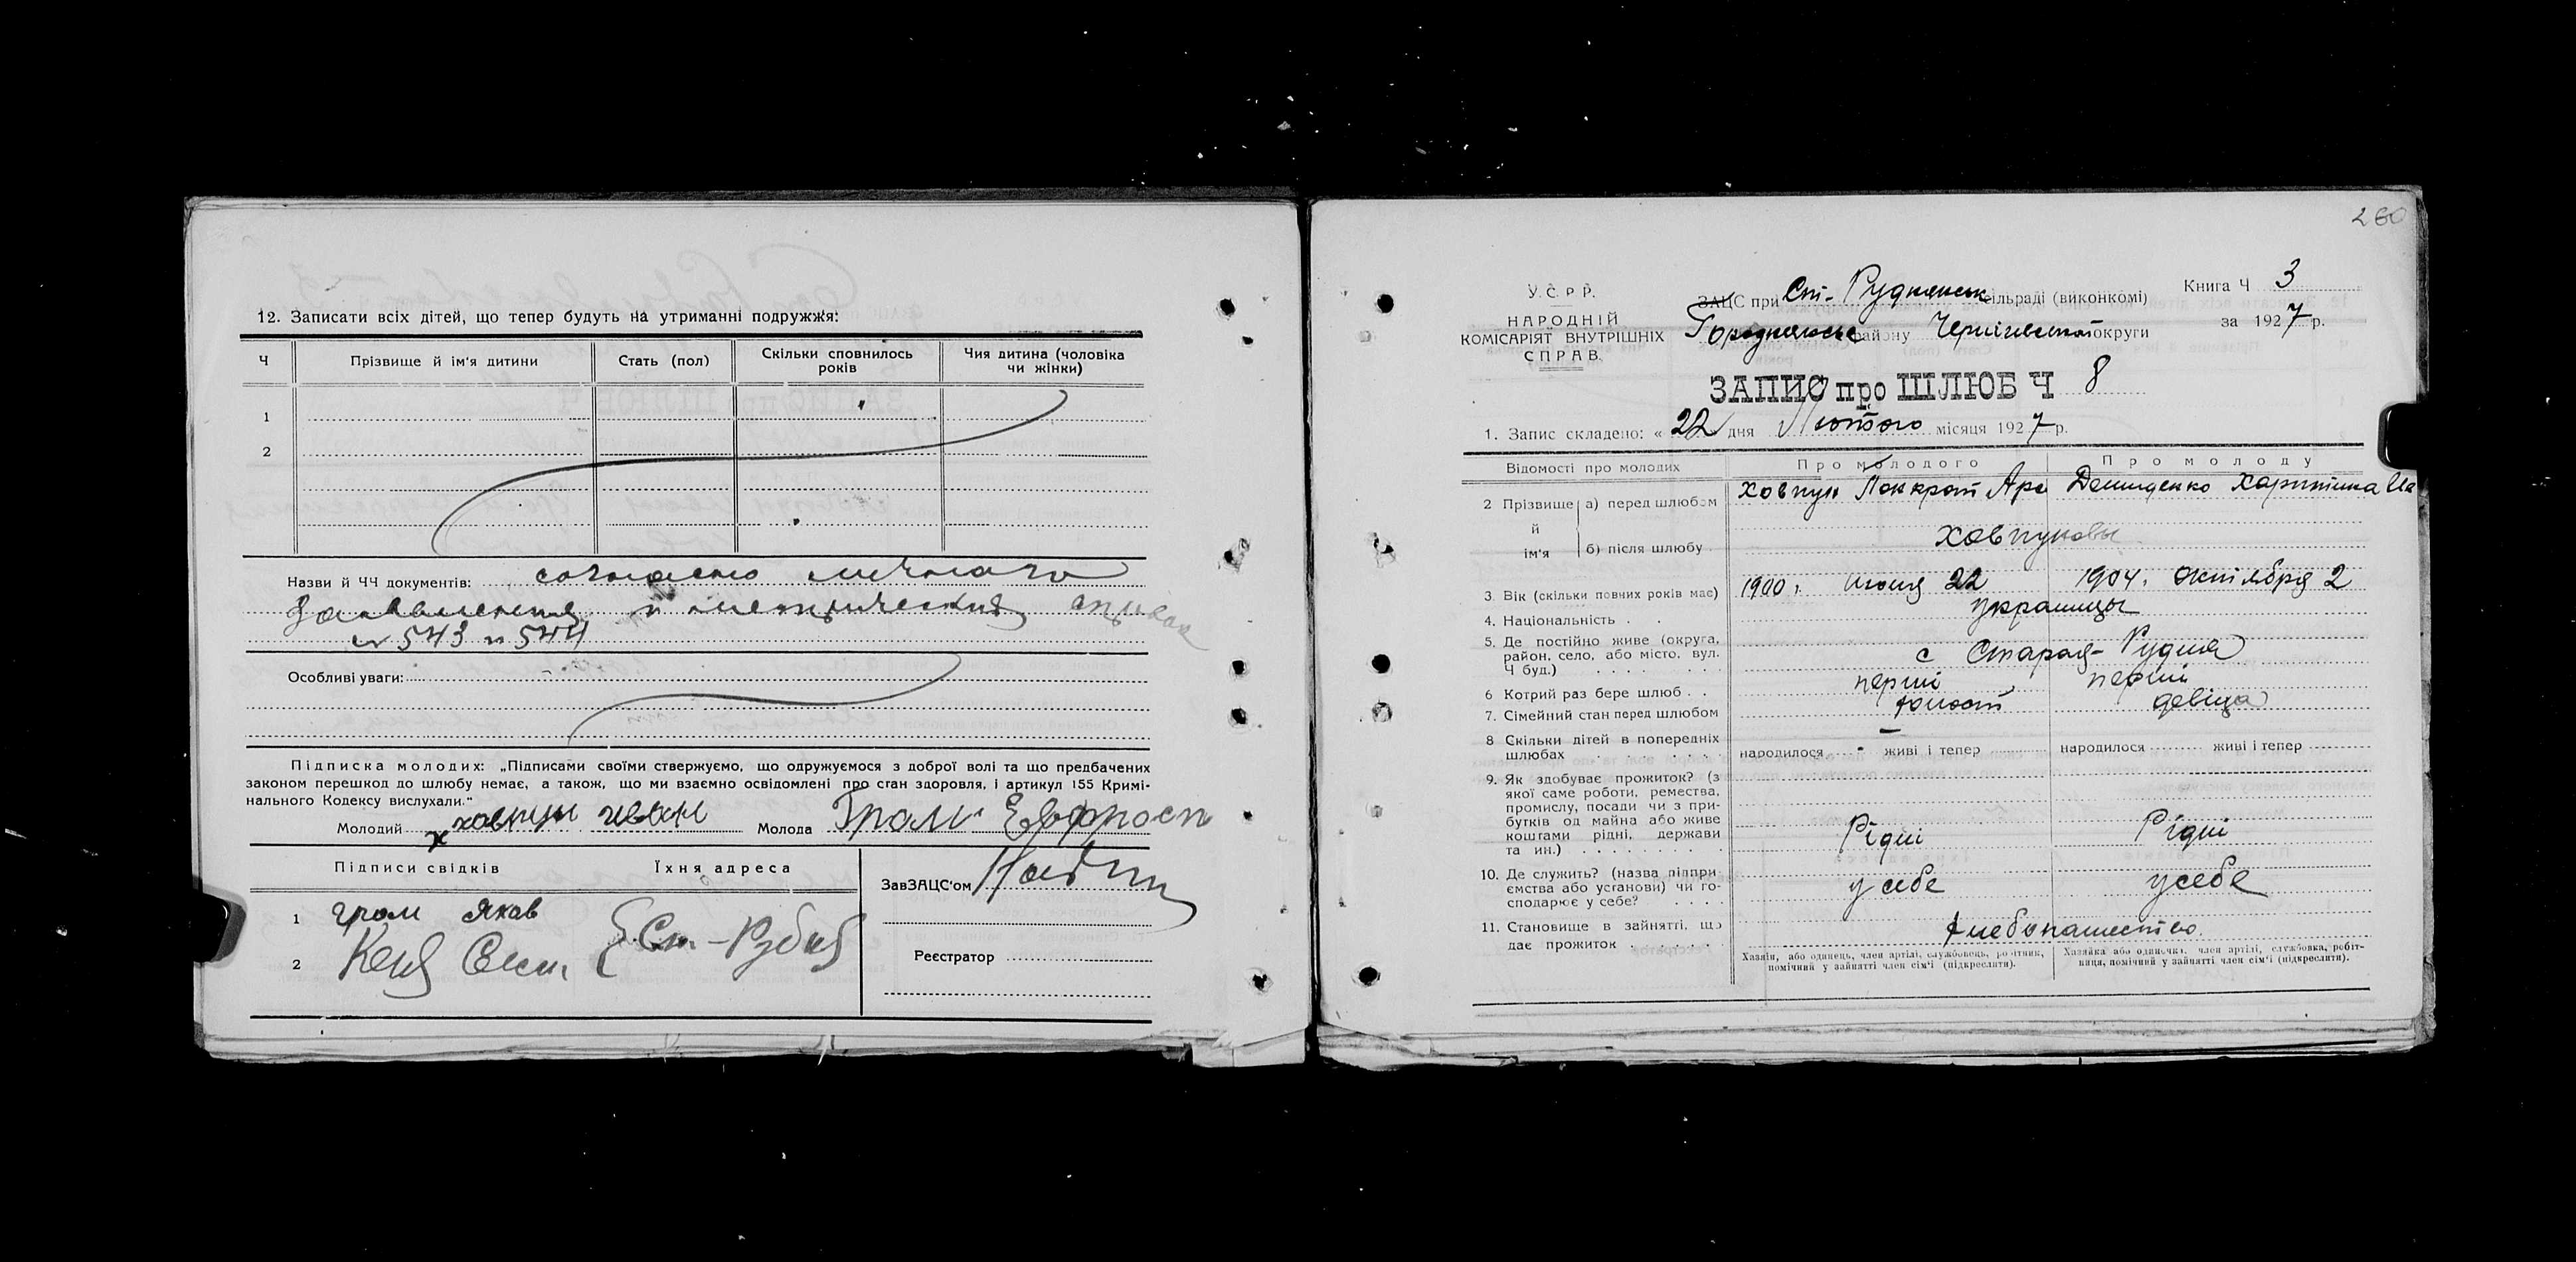 12. Записати всіх дітей, що тепер будуть на утриманні подружжя:
Ч Прізвище й ім'я дитини Стать (пол) Скільки сповнилось років Чия дитина (чоловіка чи жінки)
1
2
Назви й ЧЧ документів: согласно личного
Заявления и метрических
№ 543 и 544
Особливі уваги:
Підписка молодих: „Підписами своїми ствержуємо, що одружуємося з доброї волі та що предбачених
законом перешкод до шлюбу немає, а також, що ми взаємно освідомлені про стан здоров'я, і артикул 155 Кримі-
нального Кодексу вислухали."
Молодий Молода Гром Евфрось
Підписи свідків Їхня адреса
ЗавЗАЦС'ом
1 гром Яков
2 Ст-Рудня
Реєстратор
260
У.С.Р.Р.
НАРОДНІЙ
КОМІСАРІЯТ ВНУТРІШНІХ
СПРАВ.
ЗАЦС при Ст-Руднянськ сільраді (виконкомі)
Городнянське району Чернігівської округи
Книга Ч 3
за 1927 р.
ЗАПИС про ШЛЮБ Ч 8
1. Запис складено: « 22 дня Лютого місяця 1927 р.
Відомості про молодих Про молодого Про молоду
2 Прізвище й ім'я а) перед шлюбом Ховпун Пократ Аре Демиденко Харитина Ив
б) після шлюбу Ховпуновы
3. Вік (скільки повних років має) 1900 г. июня 22 1904 г. октября 2
4. Національність украинцы
5. Де постійно живе (округа, район, село, або місто, вул. Ч буд.) с Старая-Рудня
6 Котрий раз бере шлюб перши перши
7. Сімейний стан перед шлюбом холост девица
8 Скільки дітей в попередніх шлюбах народилося - живі і тепер народилося живі і тепер
9. Як здобуває прожиток? (з
якої саме роботи, ремества,
промислу, посади чи з при-
бутків од майна або живе
коштами рідні, держави
та ин.) Рідні Рідні
10. Де служить? (назва підпри-
ємства або установи) чи го-
сподарює у себе? у себе у себе
11. Становище в зайнятті, що
дає прожиток хлебопашество.
Хазяїн, або одинець, член артілі, службовець, робітник,
помічний у зайнятті член сім'ї (підкреслити).
Хазяйка або одиночка, член артілі, службовка, робіт-
ниця, помічний у зайнятті член сім'ї (підкреслити).